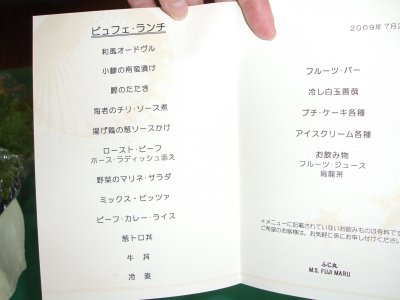 ビュフェ・ランチ
和風オードヴル
小鯵の南蛮漬け
鰹のたたき
海老のチリ・ソース煮
揚げ鶏の葱ソースかけ
ロースト・ビーフ
ホース・ラディッシュ添え
野菜のマリネ・サラダ
ミックス・ピッツァ
ビーフ・カレー・ライス
葱トロ丼
牛 丼
冷 麦
2009年7月2
フルーツ・バー
冷し白玉善哉
プチ・ケーキ各種
アイスクリーム各種
お飲み物
フルーツ・ジュース
烏龍茶
*メニューに記載されていないお飲みものは有料です
ご希望のお客様は、お気軽に係にお申し付けくださ
ふじ丸
M.S. FUJI MARU